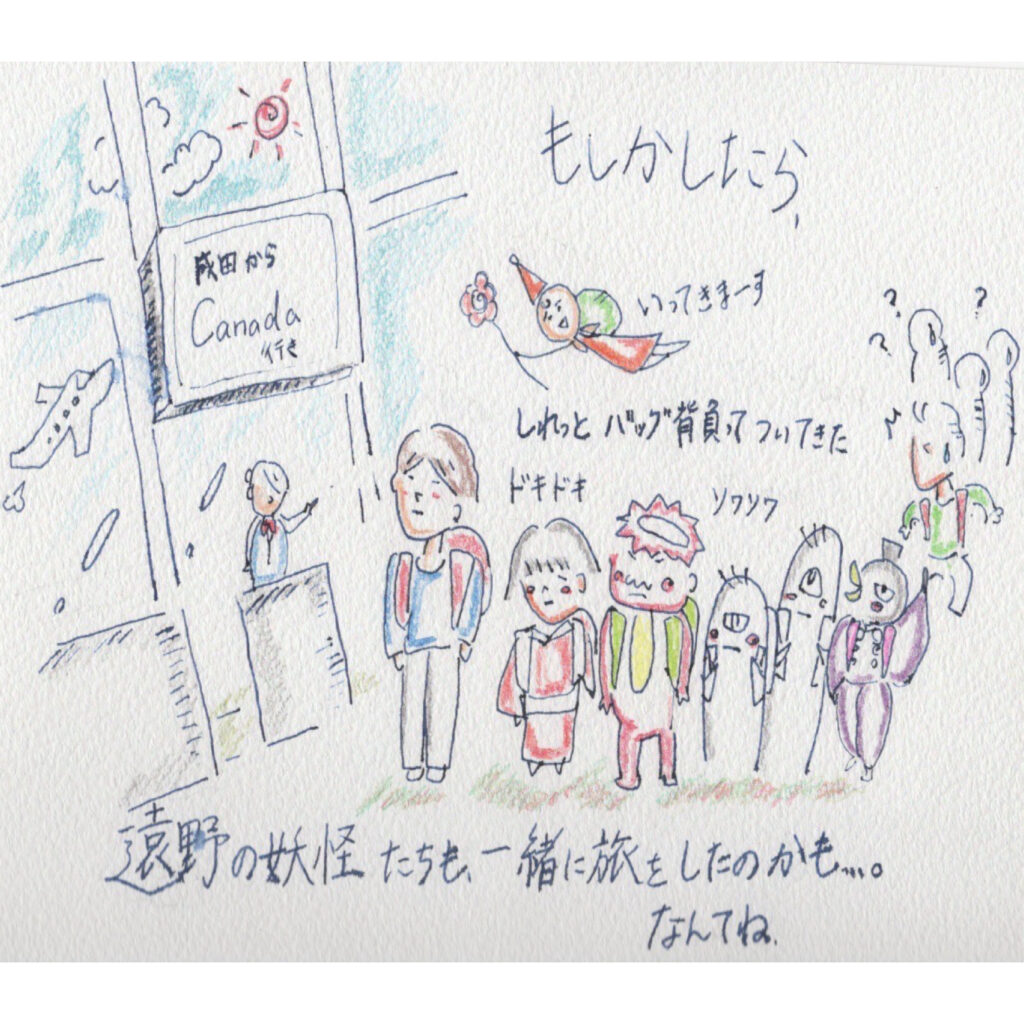 もしかしたら、
成田から
Canada
行き
いってきまーす
しれっと バッグ背負ってついてきた
ドキドキ
ソワソワ
? ?
?
♪
遠野の妖怪たちも、一緒に旅をしたのかも...。
なんてね、